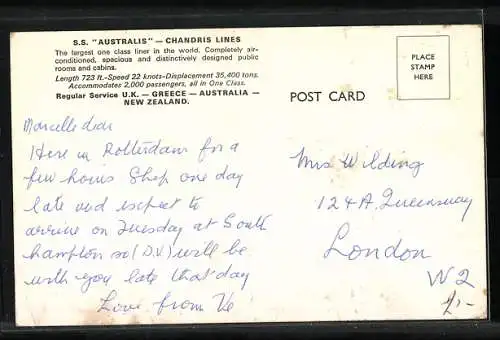 S.S. "AUSTRALIS" — CHANDRIS LINES
The largest one class liner in the world. Completely air-
conditioned, spacious and distinctively designed public
rooms and cabins.
Length 723 ft.-Speed 22 knots-Displacement 35,400 tons.
Accommodates 2,000 passengers, all in One Class.
Regular Service U.K. — GREECE — AUSTRALIA —
NEW ZEALAND.
POST CARD
PLACE
STAMP
HERE
Marcelle dear
Here in Rotterdam for a
few hours Ship one day
late and expect to
arrive on Tuesday at South
hampton so (D.V.) will be
with you late that day
Love from
Mrs Wilding
124A Queensway
London
W2